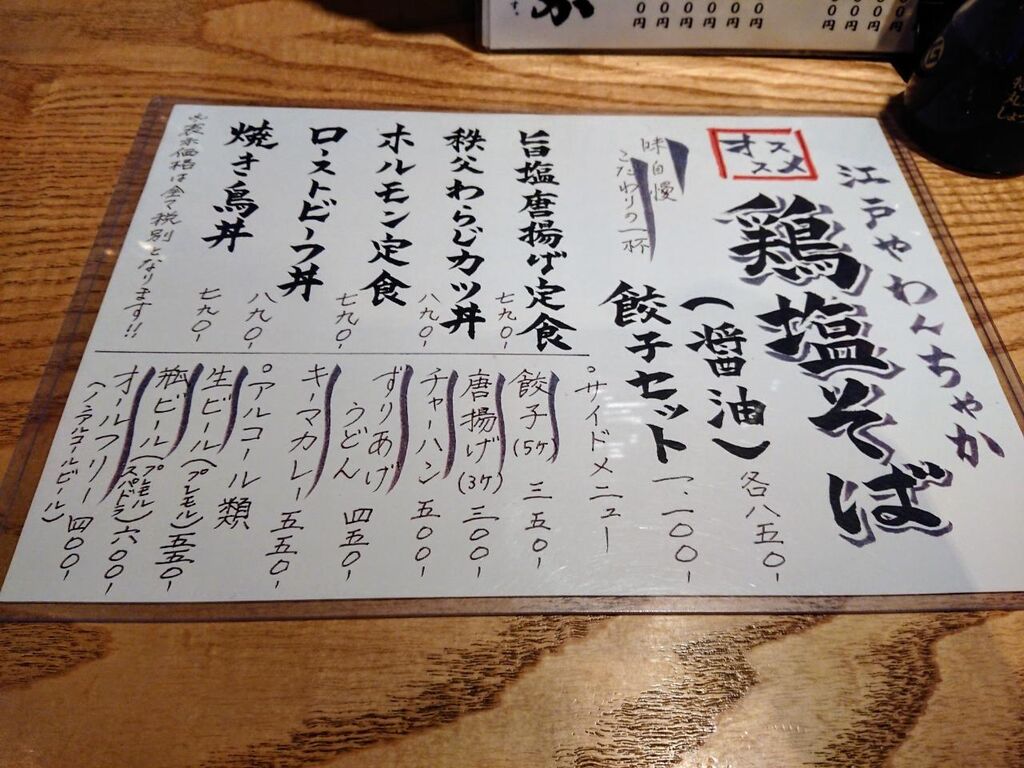 江戸やわんちゃか
オススメ
鶏塩そば
(醤油)
各八五〇-
味自慢
こだわりの一杯
餃子セット
一、一〇〇-
旨塩唐揚げ定食
七九〇-
秩父わらじカツ丼
八九〇-
ホルモン定食
七九〇-
ローストビーフ丼
八九〇-
焼き鳥丼
七九〇-
※表示価格は全て税別となります!!
○サイドメニュー
餃子(5ケ)
三五〇-
唐揚げ(3ケ)
三〇〇-
チャーハン
五〇〇-
ずりあげうどん
四五〇-
キーマカレー
五五〇-
○アルコール類
生ビール(プレモル)
五五〇-
瓶ビール(プレモル スパドラ)
六〇〇-
オールフリー
(ノンアルコールビール)
四〇〇-